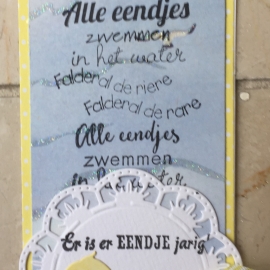 Alle eendjes
zwemmen
in het water
Falderal de riere
Falderal de rare
Alle eendjes
zwemmen
in
Er is er EENDJE jarig